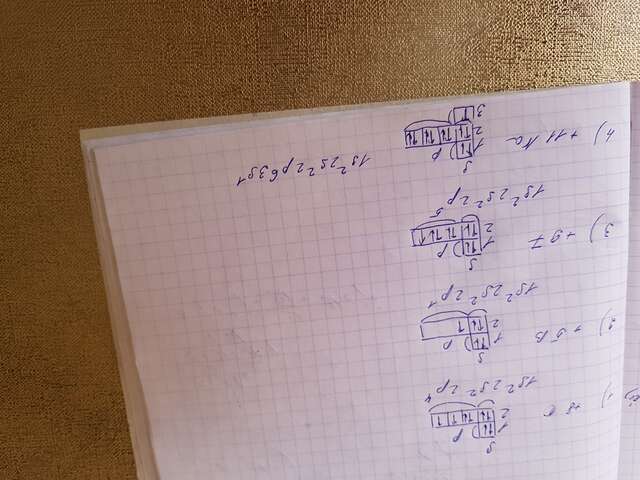 1) +8 O
S
1 ↑↓ p
2 ↑↓ ↑↓ ↑ ↑
1s² 2s² 2p⁴
2) +5 B
S
1 ↑↓ p
2 ↑↓ ↑
1s² 2s² 2p¹
3) +9 F
S
1 ↑↓ p
2 ↑↓ ↑↓ ↑↓ ↑
1s² 2s² 2p⁵
4) +11 Na
S
1 ↑↓ p
2 ↑↓ ↑↓ ↑↓ ↑↓
3 ↑
1s² 2s² 2p6 3s1